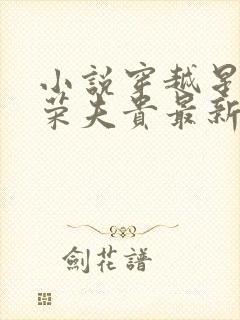 小說穿越星
榮夫貴最新
劍花譜